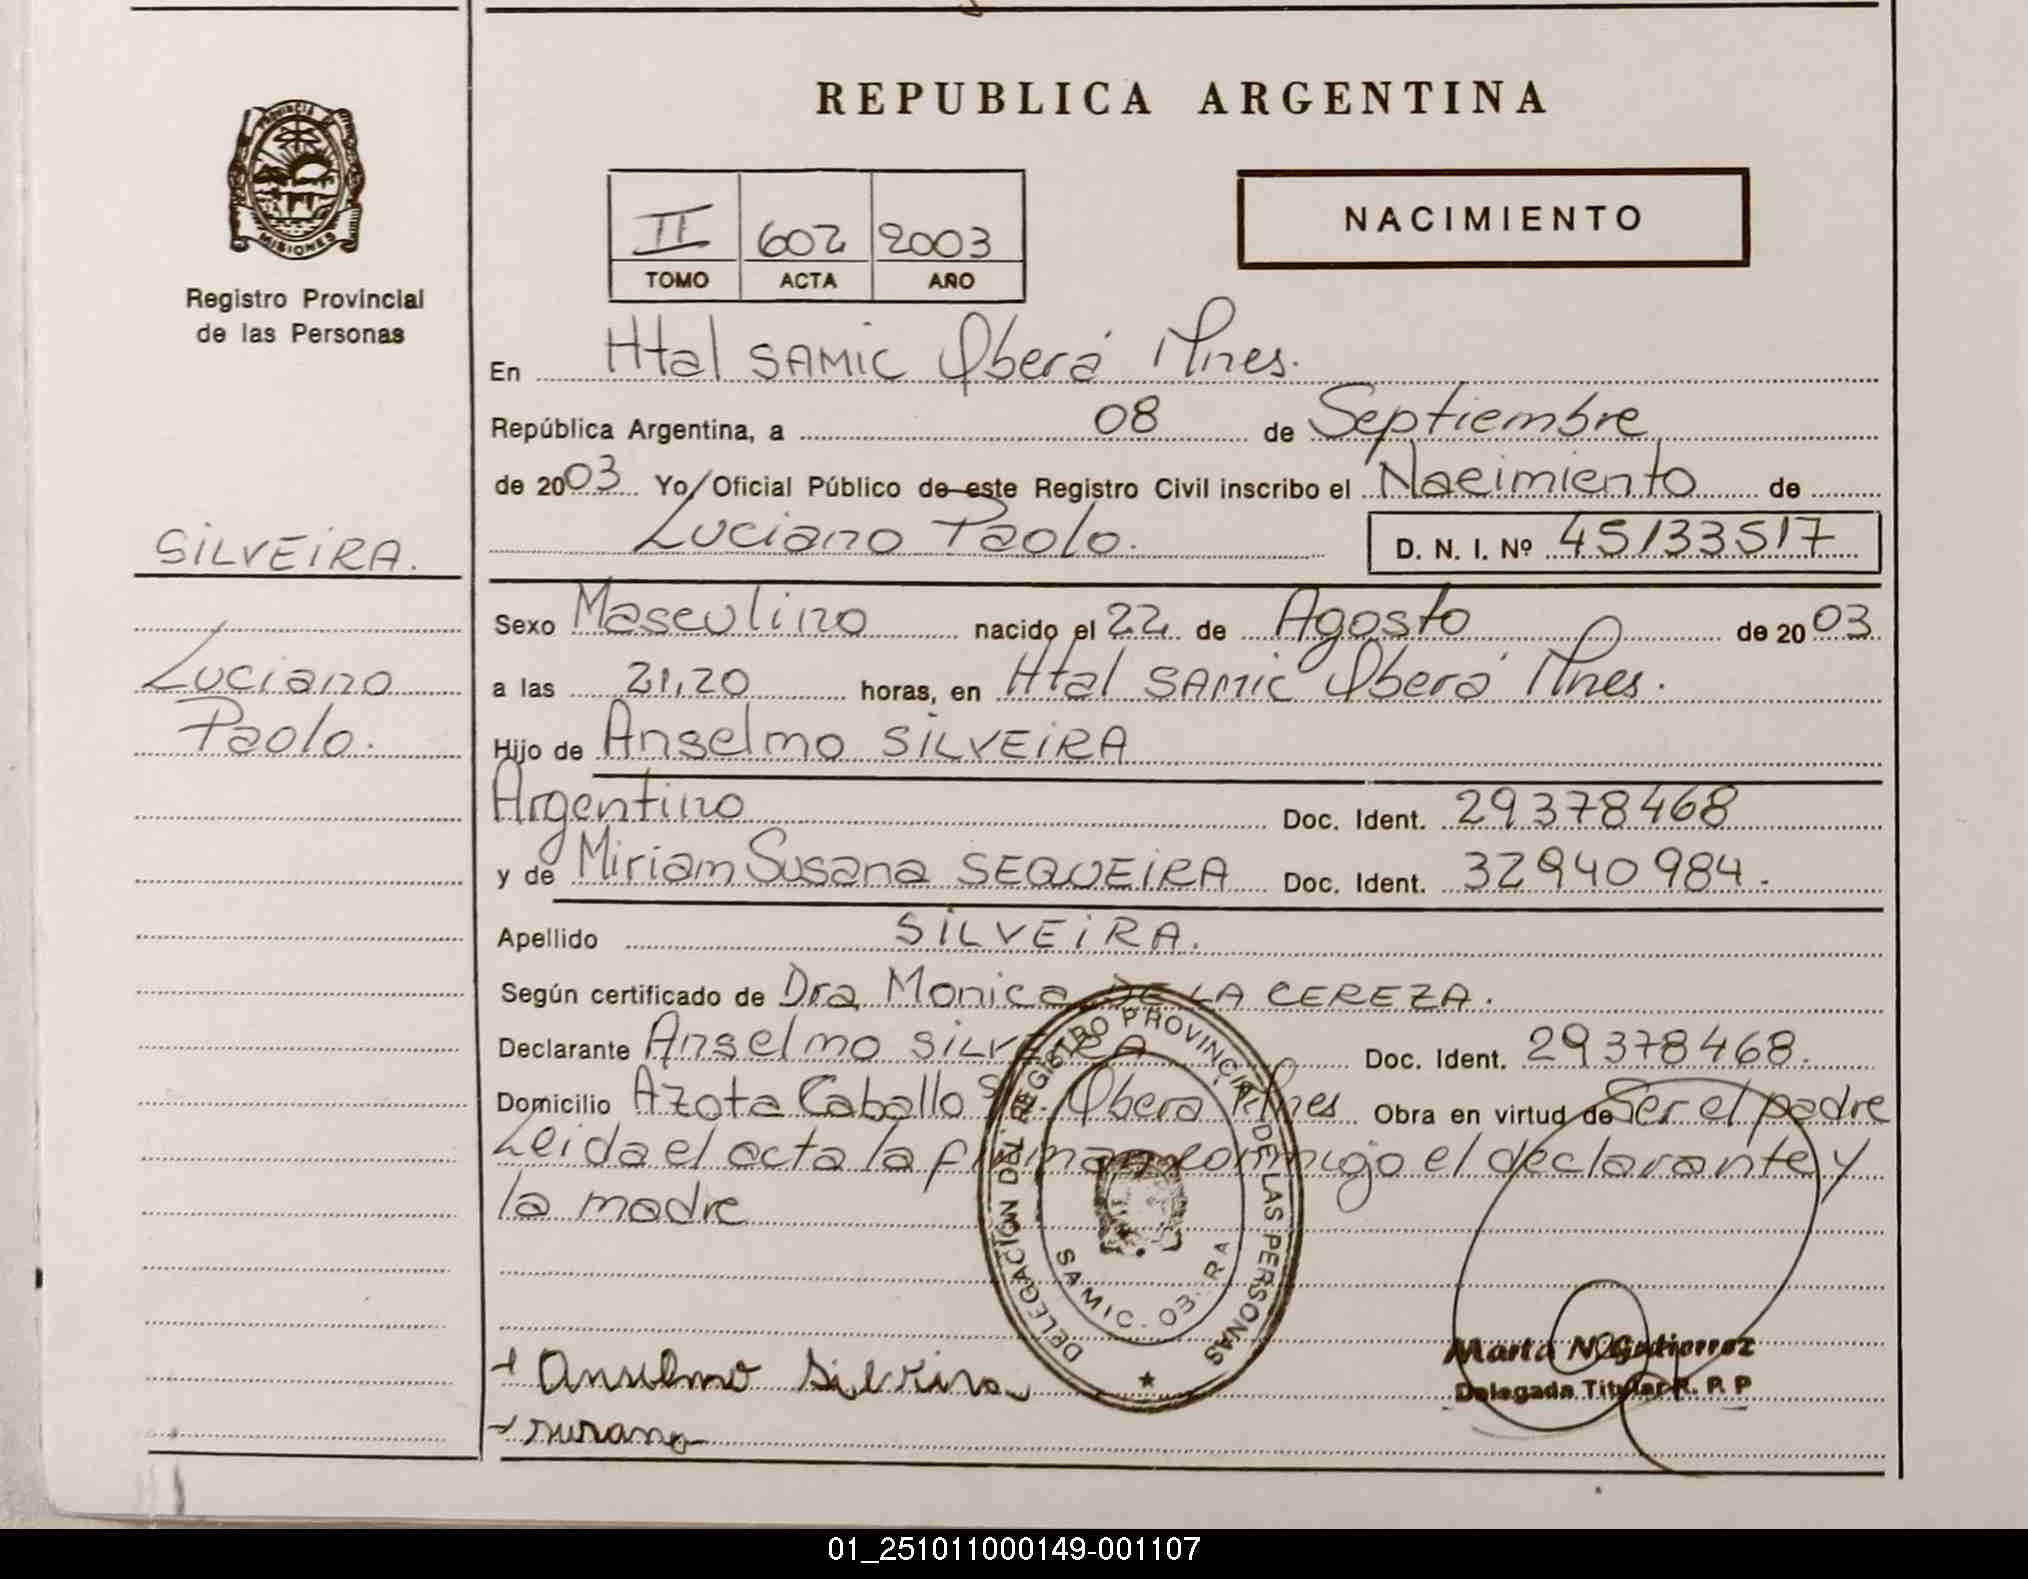 REPUBLICA ARGENTINA
PROVINCIA DE MISIONES
Registro Provincial
de las Personas
II 602 2003
TOMO ACTA AÑO
NACIMIENTO
En Htal SAMIC Oberá Mnes.
República Argentina, a 08 de Septiembre
de 2003 Yo, Oficial Público de este Registro Civil inscribo el Nacimiento de
Luciano Paolo. D. N. I. Nº 45133517
SILVEIRA.
Luciano
Paolo.
Sexo Masculino nacido el 22 de Agosto de 2003
a las 21,20 horas, en Htal SAMIC Oberá Mnes.
Hijo de Anselmo SILVEIRA
Argentino Doc. Ident. 29378468
y de Miriam Susana SEQUEIRA Doc. Ident. 32940984.
Apellido SILVEIRA.
Según certificado de Dra Monica DE LA CEREZA.
Declarante Anselmo SILVEIRA Doc. Ident. 29378468.
Domicilio Azota Caballo Oberá Mnes Obra en virtud de Ser el padre
Leida el acta la firman conmigo el declarante y
la madre
DELEGACION DEL REGISTRO PROVINCIAL DE LAS PERSONAS
SAMIC. RA
+ Anselmo Silveira
Marta N Gutierrez
Delegada Titular R. P. P
01_251011000149-001107